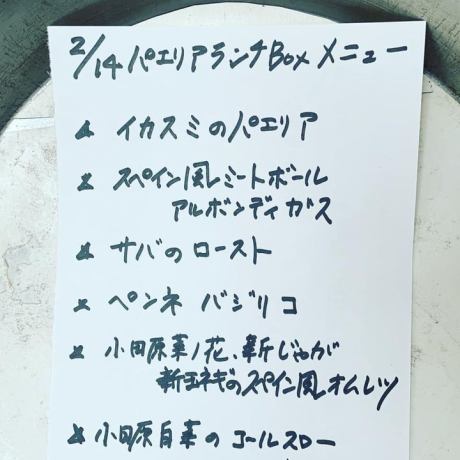 2/14 パエリアランチBox メニュー
* イカスミのパエリア
* スペイン風ミートボール
アルボンディガス
* サバのロースト
* ペンネ バジリコ
* 小田原菜ノ花、新じゃが
新玉ネギのスペイン風オムレツ
* 小田原白菜のコールスロー